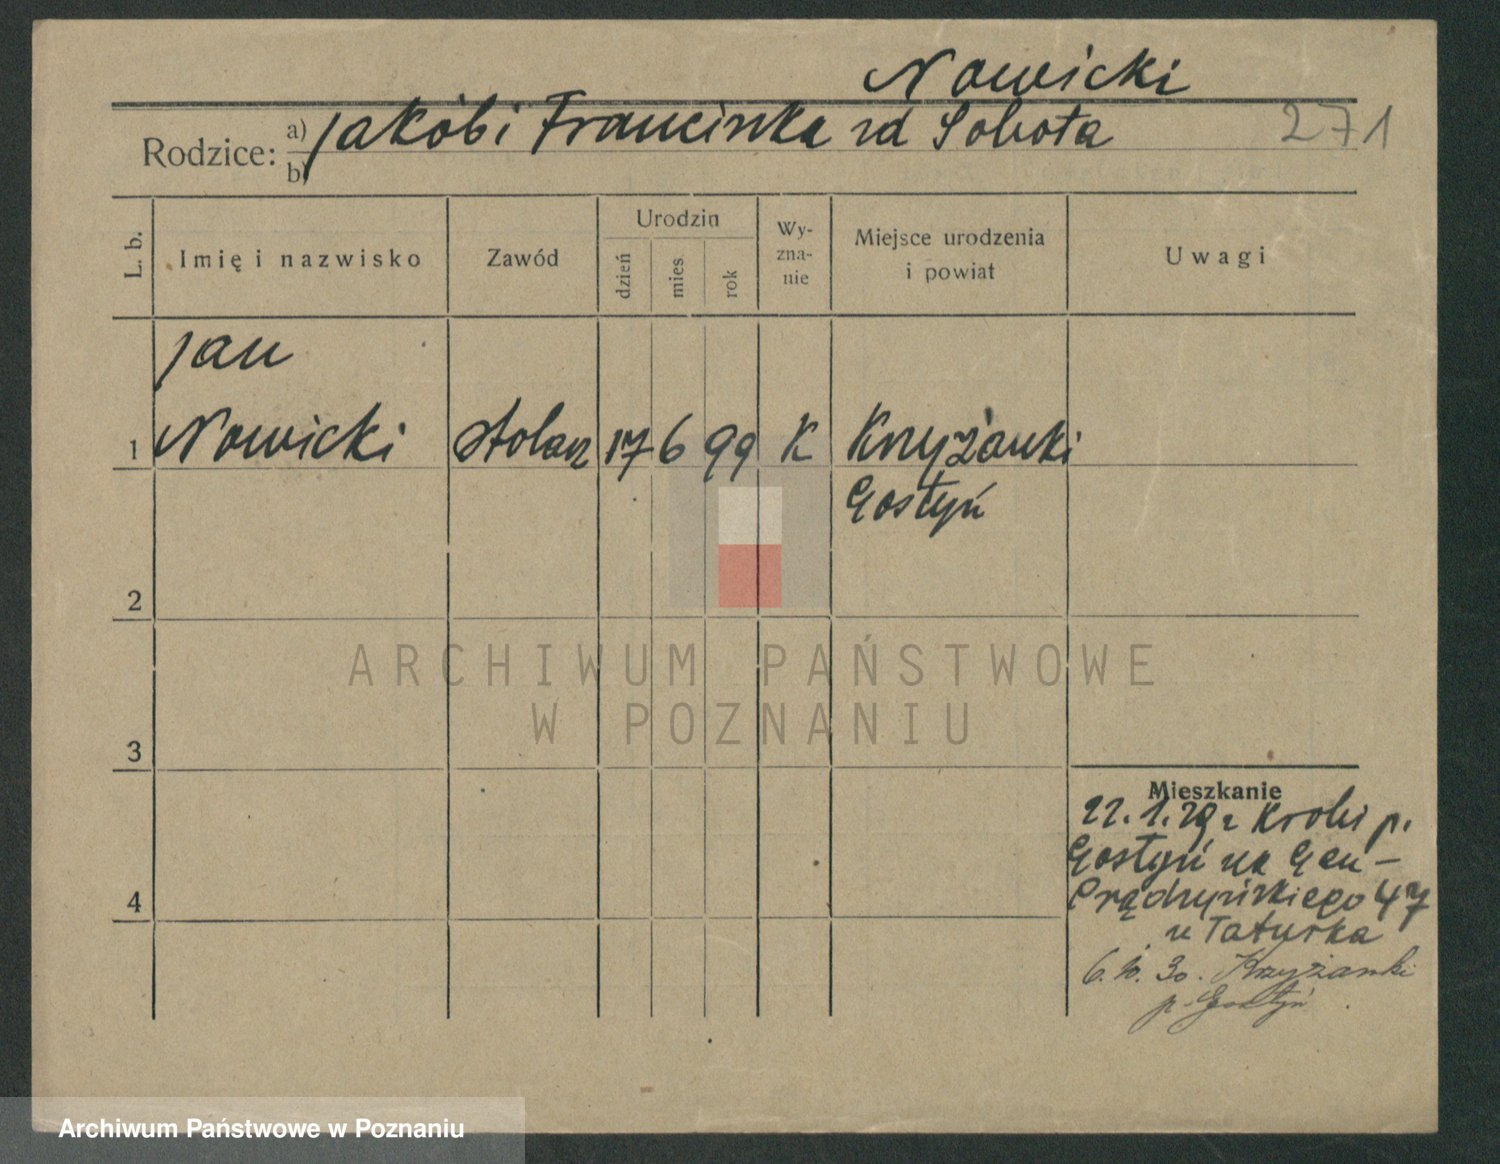 Nowicki
Rodzice: a) Jakób i Franciszka zd Sobota 271
b)
L. b. Imię i nazwisko Zawód Urodzin dzień mies. rok Wy-zna-nie Miejsce urodzenia i powiat Uwagi
Jan
1 Nowicki stolarz 17 6 99 K Krzyżanki
Gostyń
2
ARCHIWUM PAŃSTWOWE
W POZNANIU
3
Mieszkanie
22.1.29 z Krobi p.
Gostyń na Gen-
Prądzyńskiego 47
u Taturka
4
6.10.30. Krzyżanki
p. Gostyń
Archiwum Państwowe w Poznaniu